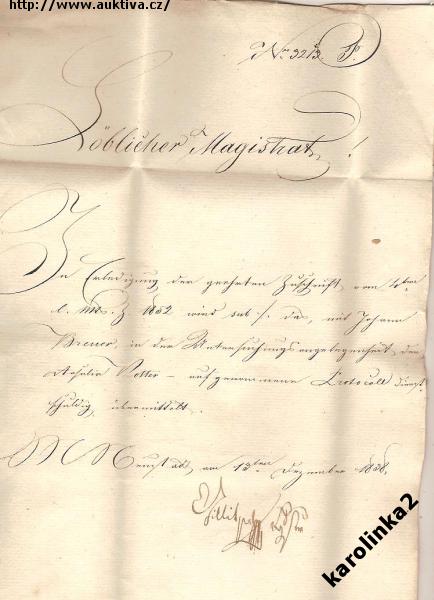 http://www.auktiva.cz/
Nro 3213. P.
Löblicher Magistrat!
In Erledigung der geehrten Zuschrift vom 4ten
l. Mts. Z 1852 wird sub /. das, mit Johann
Breuer, in der Untersuchungsangelegenheit der
aufgenommene Protocoll dienst
schuldig übermittelt.
Neustadt, am 13ten Dezember 1838.
karolinka2